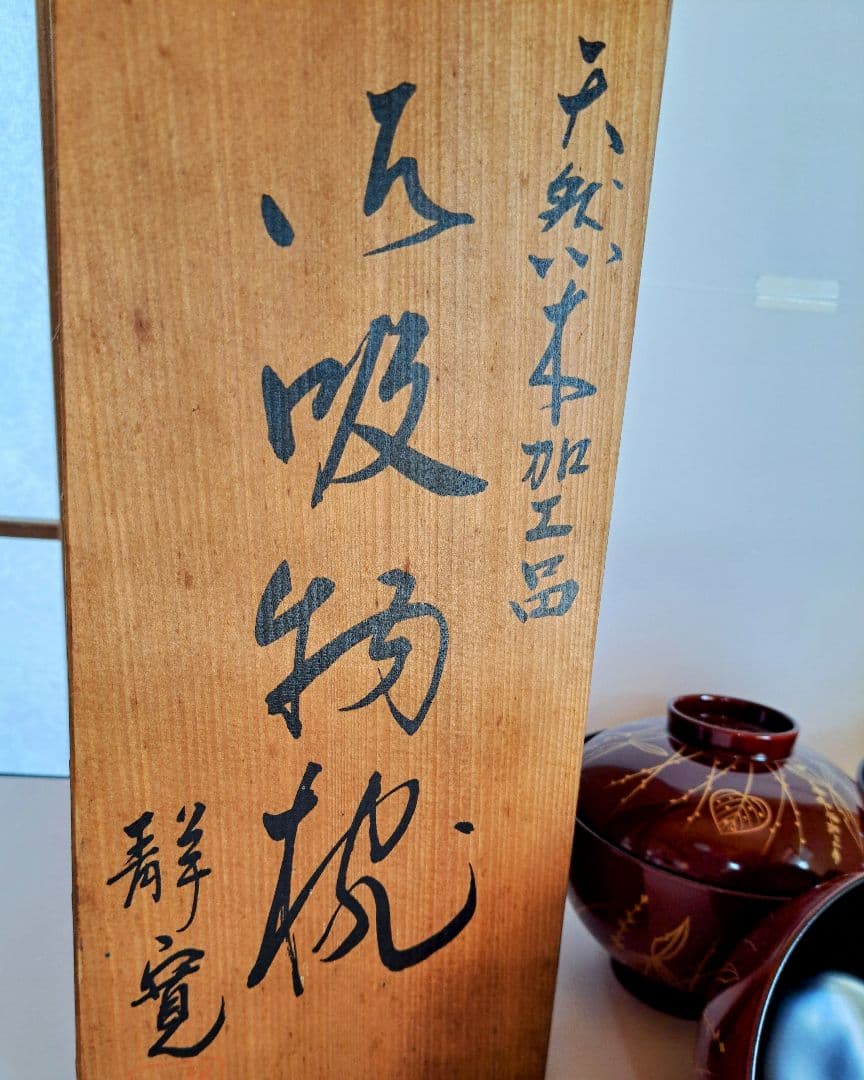 天然木加工品
御吸物椀
静寛